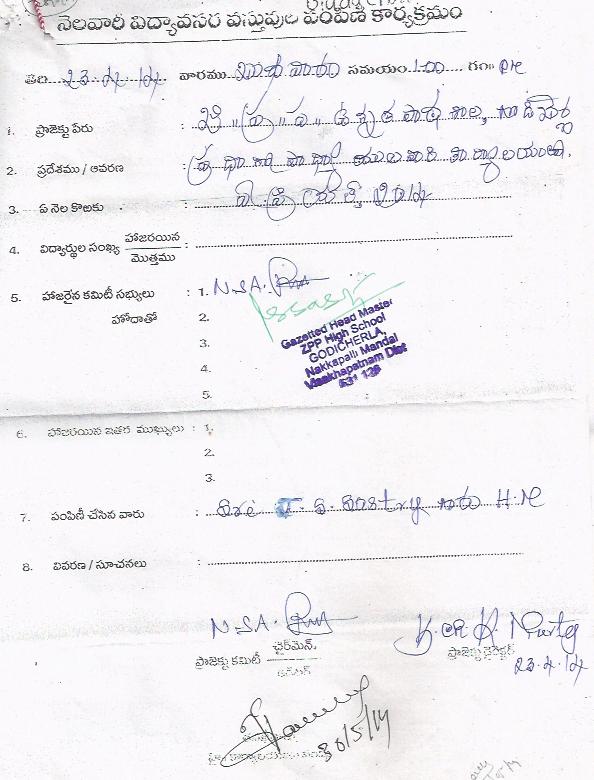 నెలవారీ విద్యావసర వస్తువుల పంపిణీ కార్యక్రమం
తేది 23.4.14. వారము బుధవారం సమయం 1.00 గం॥ PM
1. ప్రాజెక్టు పేరు : జి॥ప్ర॥ప॥ ఉన్నత పాఠశాల, గొడిచెర్ల
2. ప్రదేశము / ఆవరణ : ప్రధానోపాధ్యాయులవారి కార్యాలయం.
3. ఏ నెల కొఱకు : ఏప్రియల్ 2014
4. విద్యార్థుల సంఖ్య హాజరయిన / మొత్తము :
5. హాజరైన కమిటీ సభ్యులు : 1. N.S.A.
హోదాతో 2.
3.
4.
5.
Gazetted Head Master
ZPP High School
GODICHERLA,
Nakkapalli Mandal
Visakhapatnam Dist
531 126
6. హాజరయిన ఇతర ముఖ్యులు : 1.
2.
3.
7. పంపిణీ చేసిన వారు : Sri J. S. Sastry గారు H.M
8. వివరణ / సూచనలు :
N.S.A.
ఛైర్‌మెన్
ప్రాజెక్టు కమిటీ
K. Ch. K. Murty
ప్రాజెక్టు డైరెక్టర్
23.4.14
30/5/14